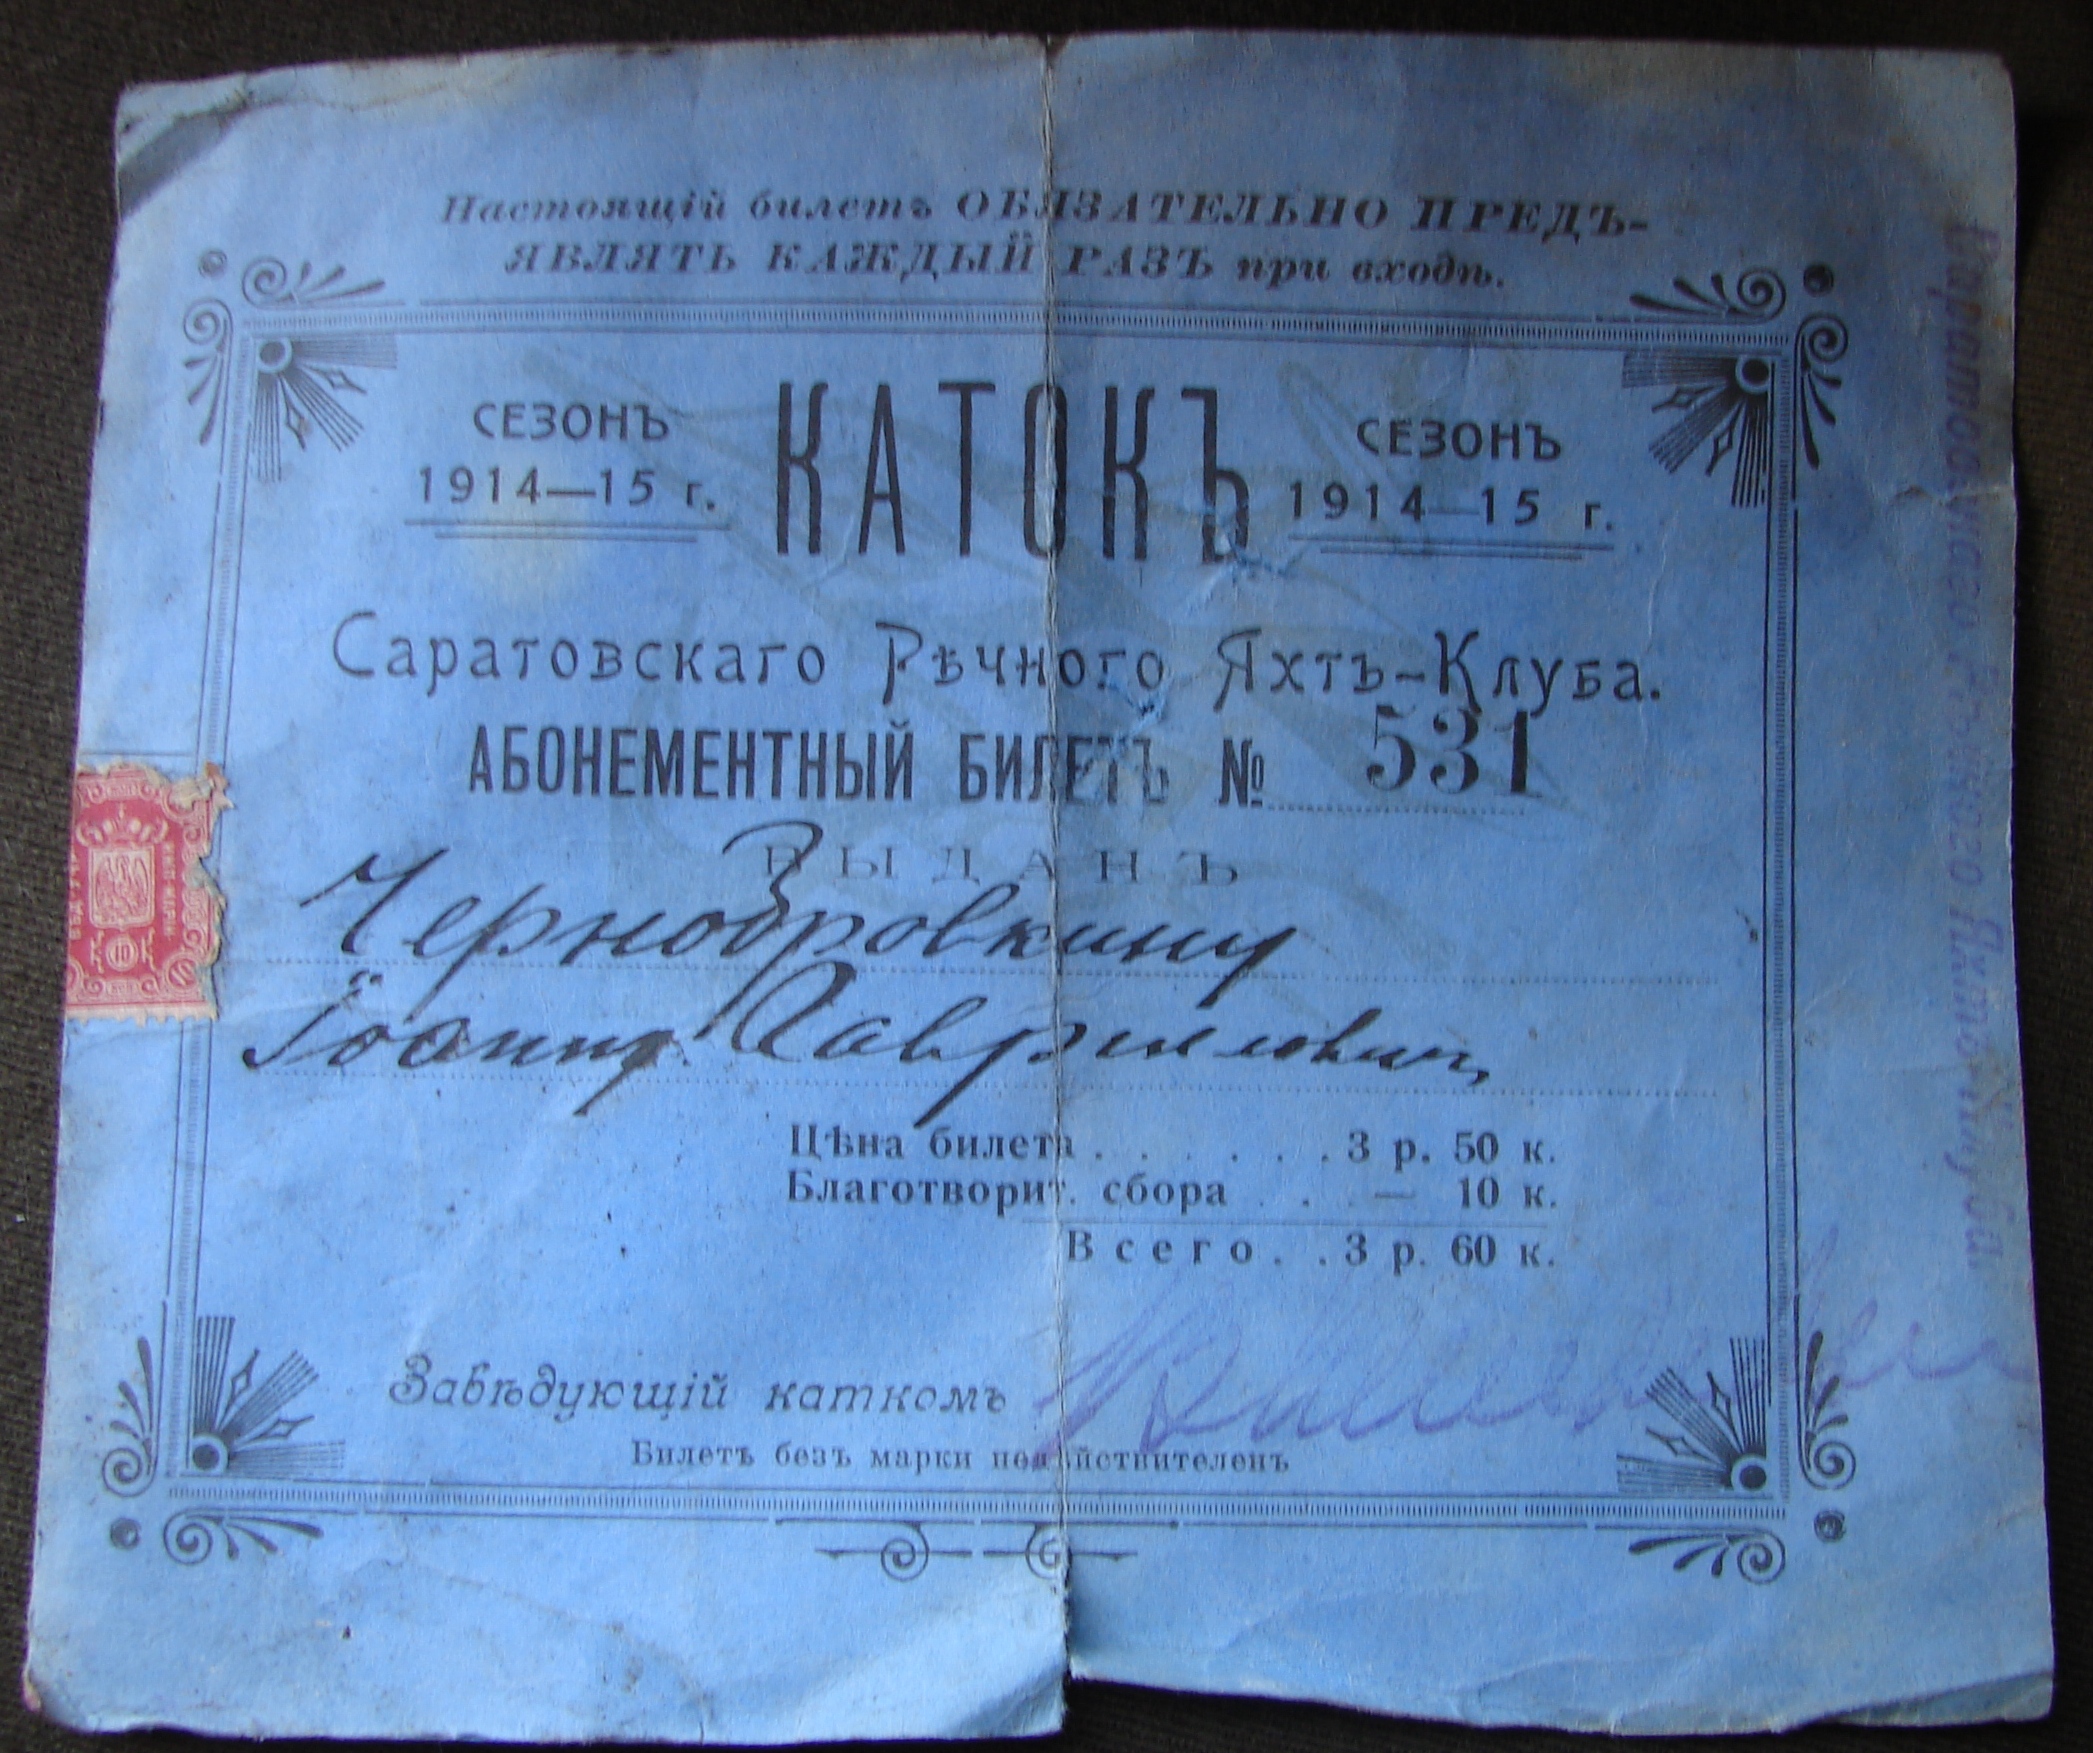 Настоящій билетъ ОБЯЗАТЕЛЬНО ПРЕДЪ-
ЯВЛЯТЬ КАЖДЫЙ РАЗЪ при входѣ.
СЕЗОНЪ
1914—15 г.
КАТОКЪ
СЕЗОНЪ
1914—15 г.
Саратовскаго Рѣчного Яхтъ-Клуба.
АБОНЕМЕНТНЫЙ БИЛЕТЪ № 531
ВЫДАНЪ
Чернобровкину
Іоанну Гавриловичу
Цѣна билета . . . . . . . 3 р. 50 к.
Благотворит. сбора . . . — 10 к.
Всего . . 3 р. 60 к.
Завѣдующій каткомъ
Билетъ безъ марки недѣйствителенъ
Саратовскаго Рѣчного Яхтъ-Клуба.
10